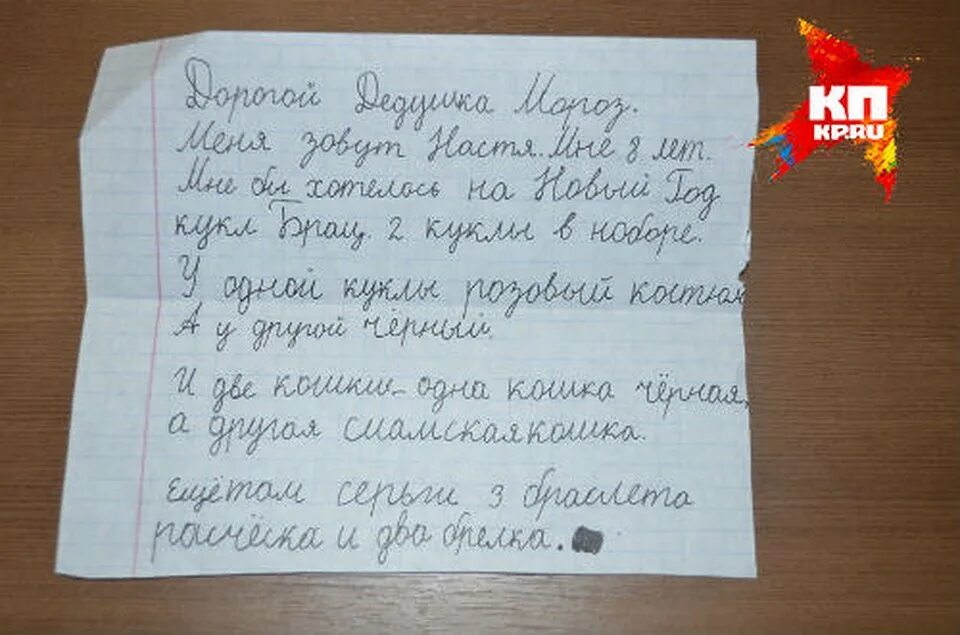 Дорогой Дедушка Мороз.
Меня зовут Настя. Мне 8 лет.
Мне бы хотелось на Новый Год
кукл Брац. 2 куклы в наборе.
У одной куклы розовый костюм
А у другой чёрный.
И две кошки – одна кошка чёрная,
а другая сиамская кошка.
Ещётам серьги 3 браслета
расчёска и два брелка.
КП
KP.RU